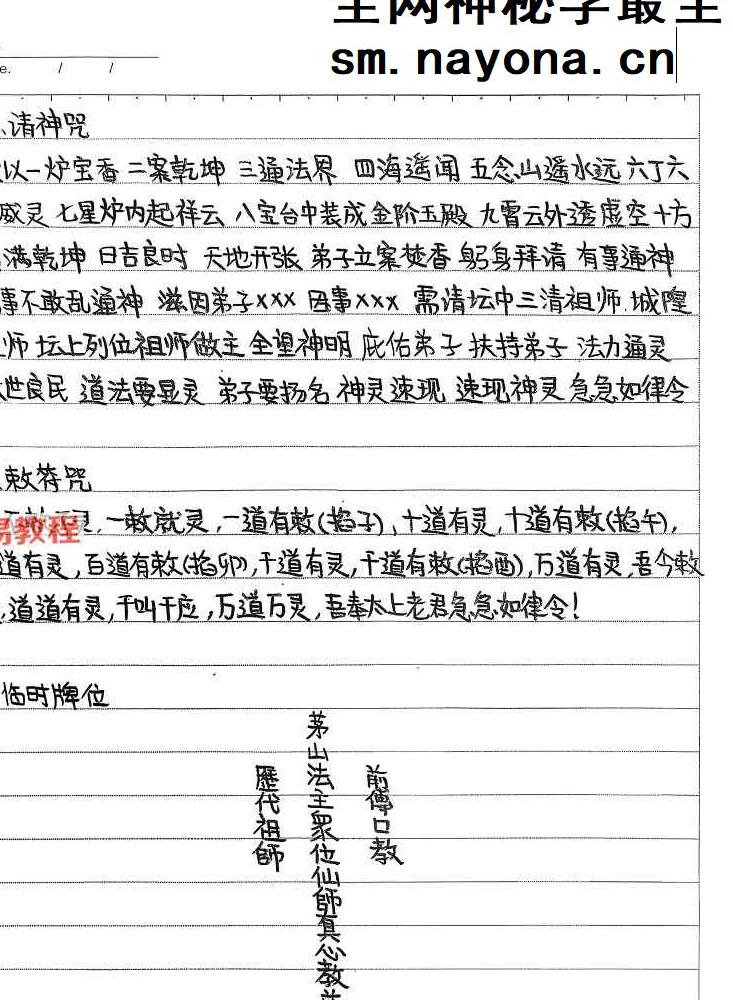 sm.nayona.cn
e. / /
请神咒
以一炉宝香 二案乾坤 三通法界 四海遥闻 五念山遥水远 六丁六
威灵 七星炉内起祥云 八宝台中装成金阶玉殿 九霄云外透虚空 十方
满乾坤 日吉良时 天地开张 弟子立案焚香 躬身拜请 有事通神
事不敢乱通神 滋因弟子xxx 因事xxx 需请坛中三清祖师.城隍
师 坛上列位祖师做主 全望神明 庇佑弟子 扶持弟子 法力通灵
世良民 道法要显灵 弟子要扬名 神灵速现 速现神灵 急急如律令
敕符咒
易教程
灵,一敕就灵,一道有敕(掐子),十道有灵,十道有敕(掐午),
道有灵,百道有敕(掐卯),千道有灵,千道有敕(掐酉),万道有灵,吾今敕
,道道有灵,千叫千应,万道万灵,吾奉太上老君急急如律令!
临时牌位
前傳口教
茅山法主衆位仙師真心教
歷代祖師